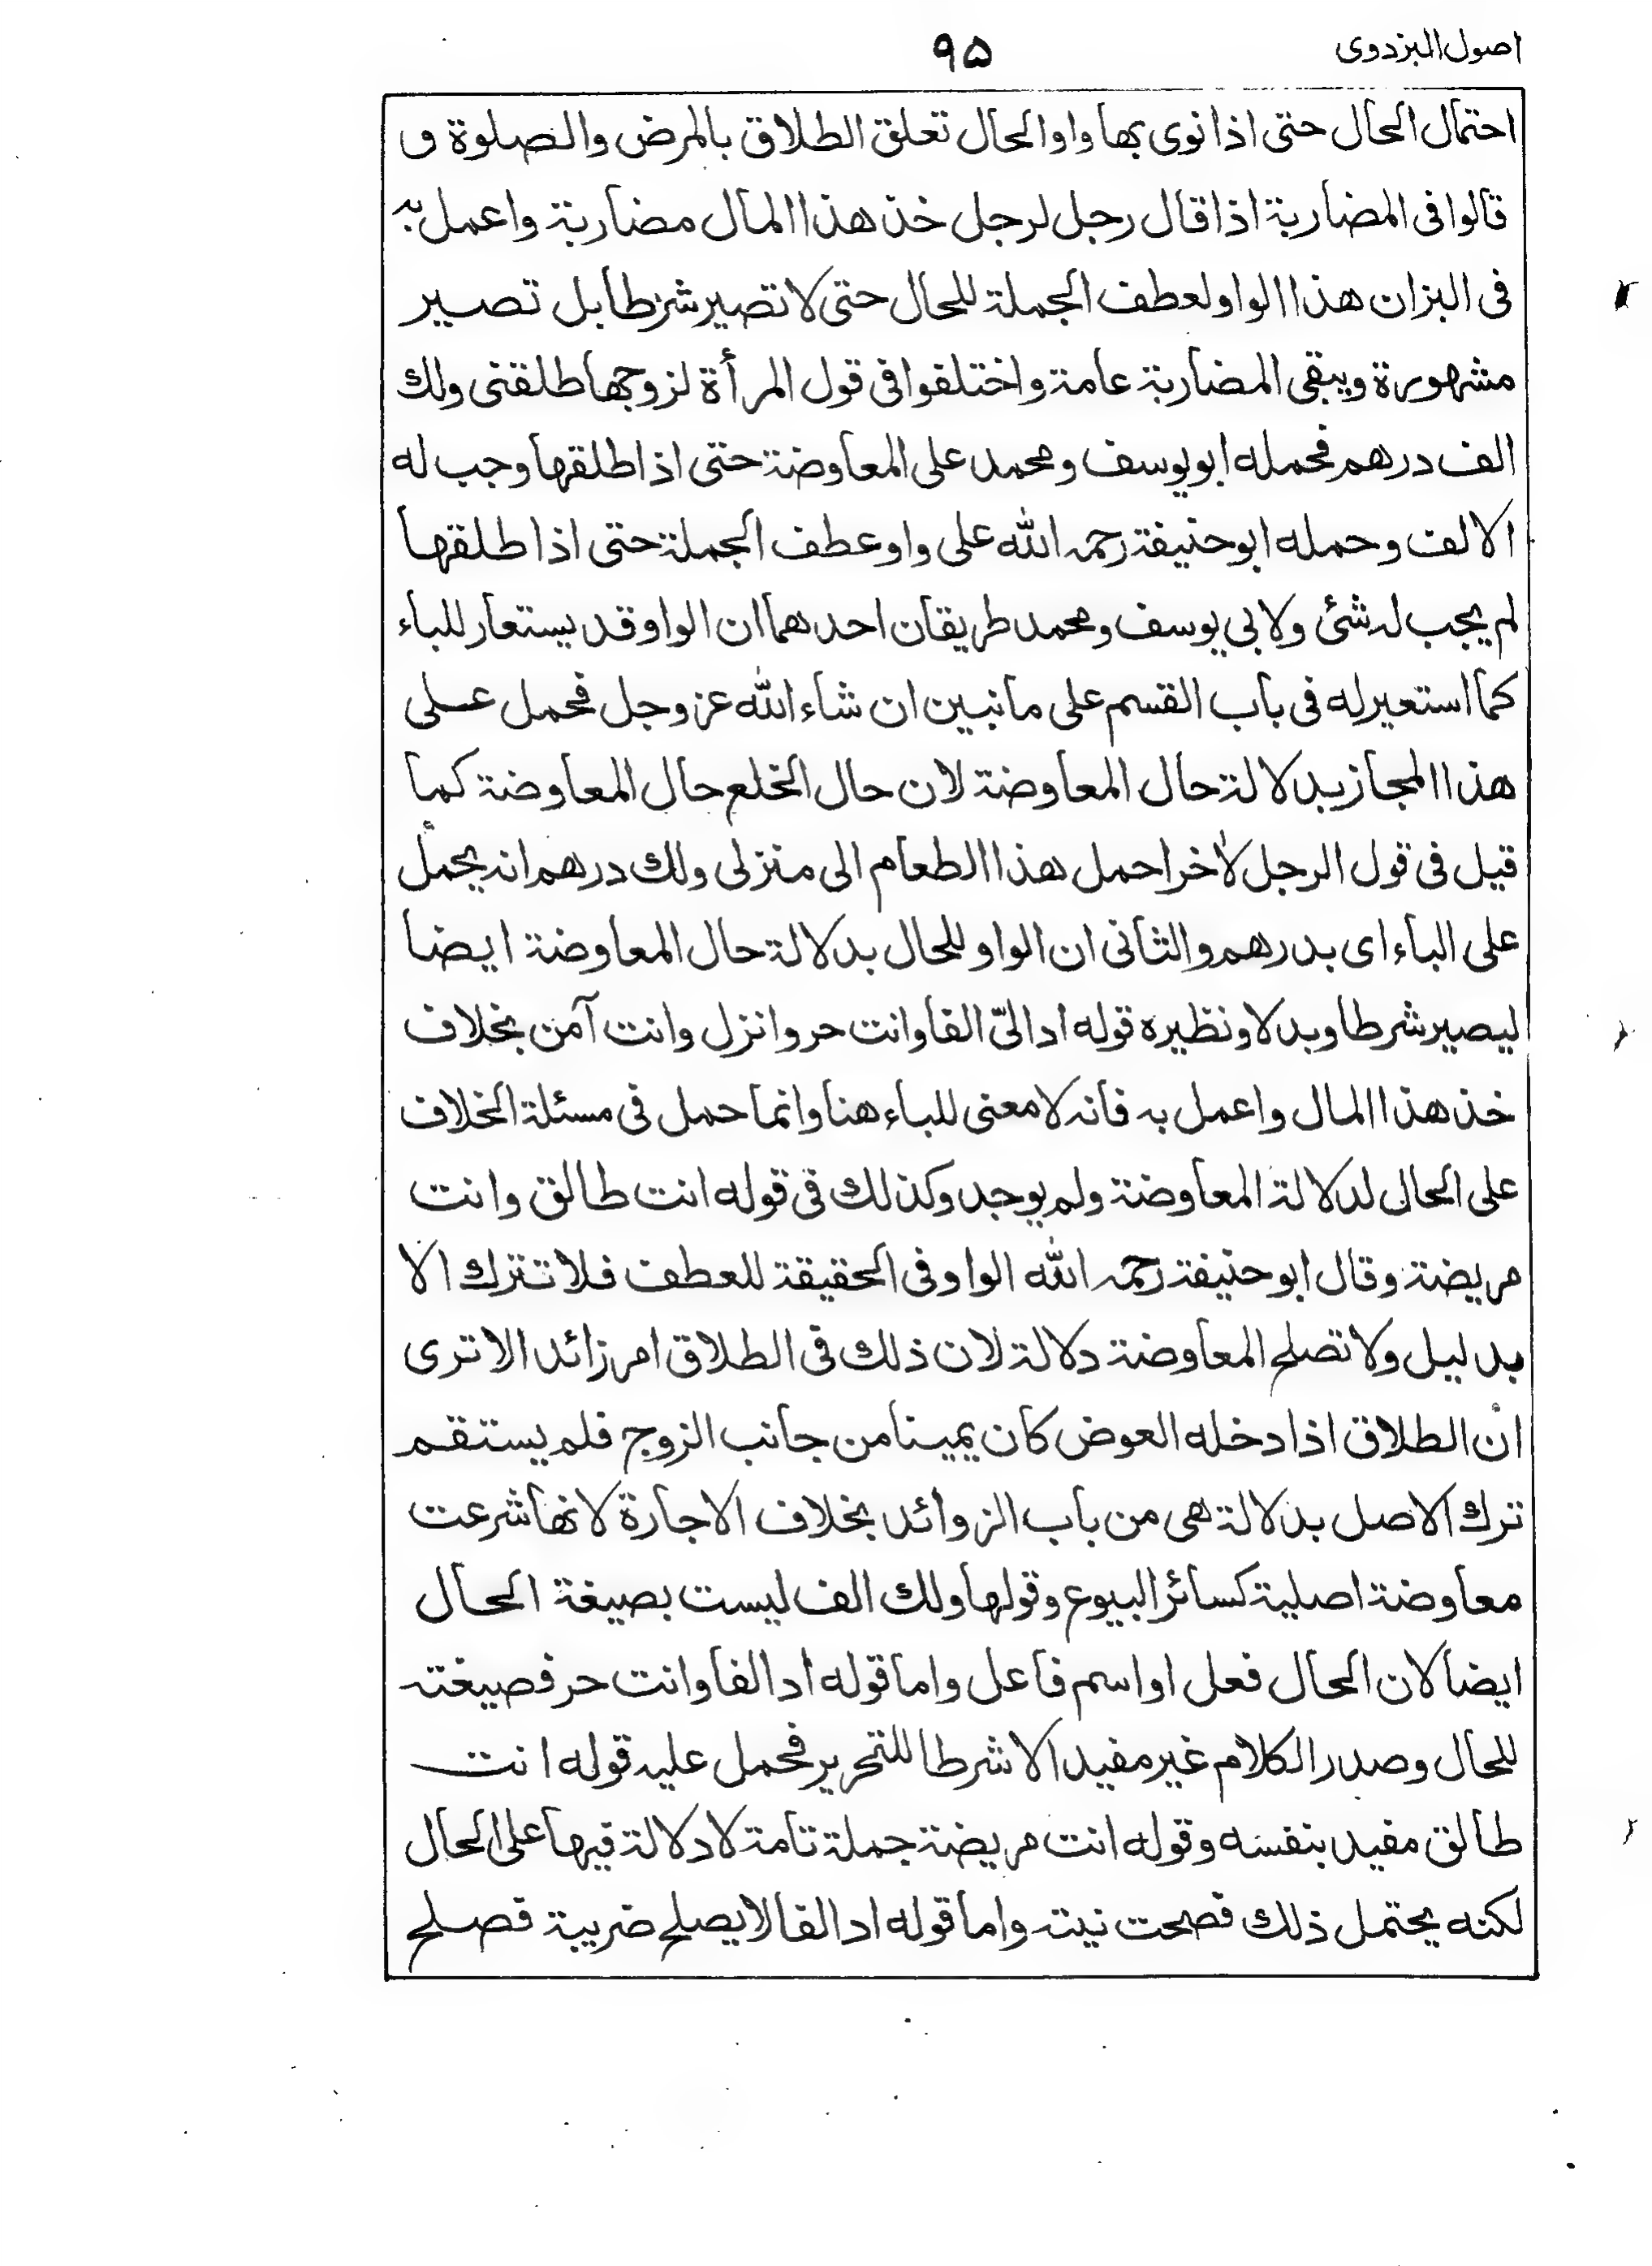 اصول البزدوى
۹۵
احتمال الحال حتى اذا نوى بها واو الحال تعلق الطلاق بالمرض والصلوة و
قالوا فى المضاربة اذا قال رجل لرجل خذ هذا المال مضاربة واعمل به
فى البز ان هذا الواو لعطف الجملة للحال حتى لا تصير شرطا بل تصير
مشهورة ويبقى المضاربة عامة واختلقوا فى قول المرأة لزوجها طلقنى ولك
الف درهم فحمله ابو يوسف ومحمد على المعاوضة حتى اذا طلقها وجب له
الالف وحمله ابو حنيفة رحمه الله على واو عطف الجملة حتى اذا طلقها
لم يجب له شئ ولابى يوسف ومحمد طريقان احدهما ان الواو قد يستعار للباء
كما استعير له فى باب القسم على ما نبين ان شاء الله عز وجل فحمل على
هذا المجاز بدلالة حال المعاوضة لان حال الخلع حال المعاوضة كما
قيل فى قول الرجل لأخر احمل هذا الطعام الى منزلى ولك درهم انه يحمل
على الباء اى بدرهم والثانى ان الواو للحال بدلالة حال المعاوضة ايضا
ليصير شرطا وبدلا ونظيره قوله اد الىّ الفا وانت حر وانزل وانت آمن بخلاف
خذ هذا المال واعمل به فانه لا معنى للباء هنا وانما حمل فى مسئلة الخلاف
على الحال لدلالة المعاوضة ولم يوجد وكذلك فى قوله انت طالق وانت
مريضة وقال ابو حنيفة رحمه الله الواو فى الحقيقة للعطف فلا تترك الا
بدليل ولا تصلح المعاوضة دلالة لان ذلك فى الطلاق امر زائد الا ترى
ان الطلاق اذا دخله العوض كان يمينا من جانب الزوج فلم يستقم
ترك الاصل بدلالة هى من باب الزوائد بخلاف الاجارة لانها شرعت
معاوضة اصلية كسائر البيوع وقولها ولك الف ليست بصيغة الحال
ايضا لان الحال فعل او اسم فاعل واما قوله اد الفا وانت حر فصيغته
للحال وصدر الكلام غير مفيد الا شرطا للتحرير فحمل عليه قوله انت
طالق مفيد بنفسه وقوله انت مريضة جملة تامة لا دلالة فيها على الحال
لكنه يحتمل ذلك فصحت نيته واما قوله اد الفا لا يصلح ضريبة فصلح